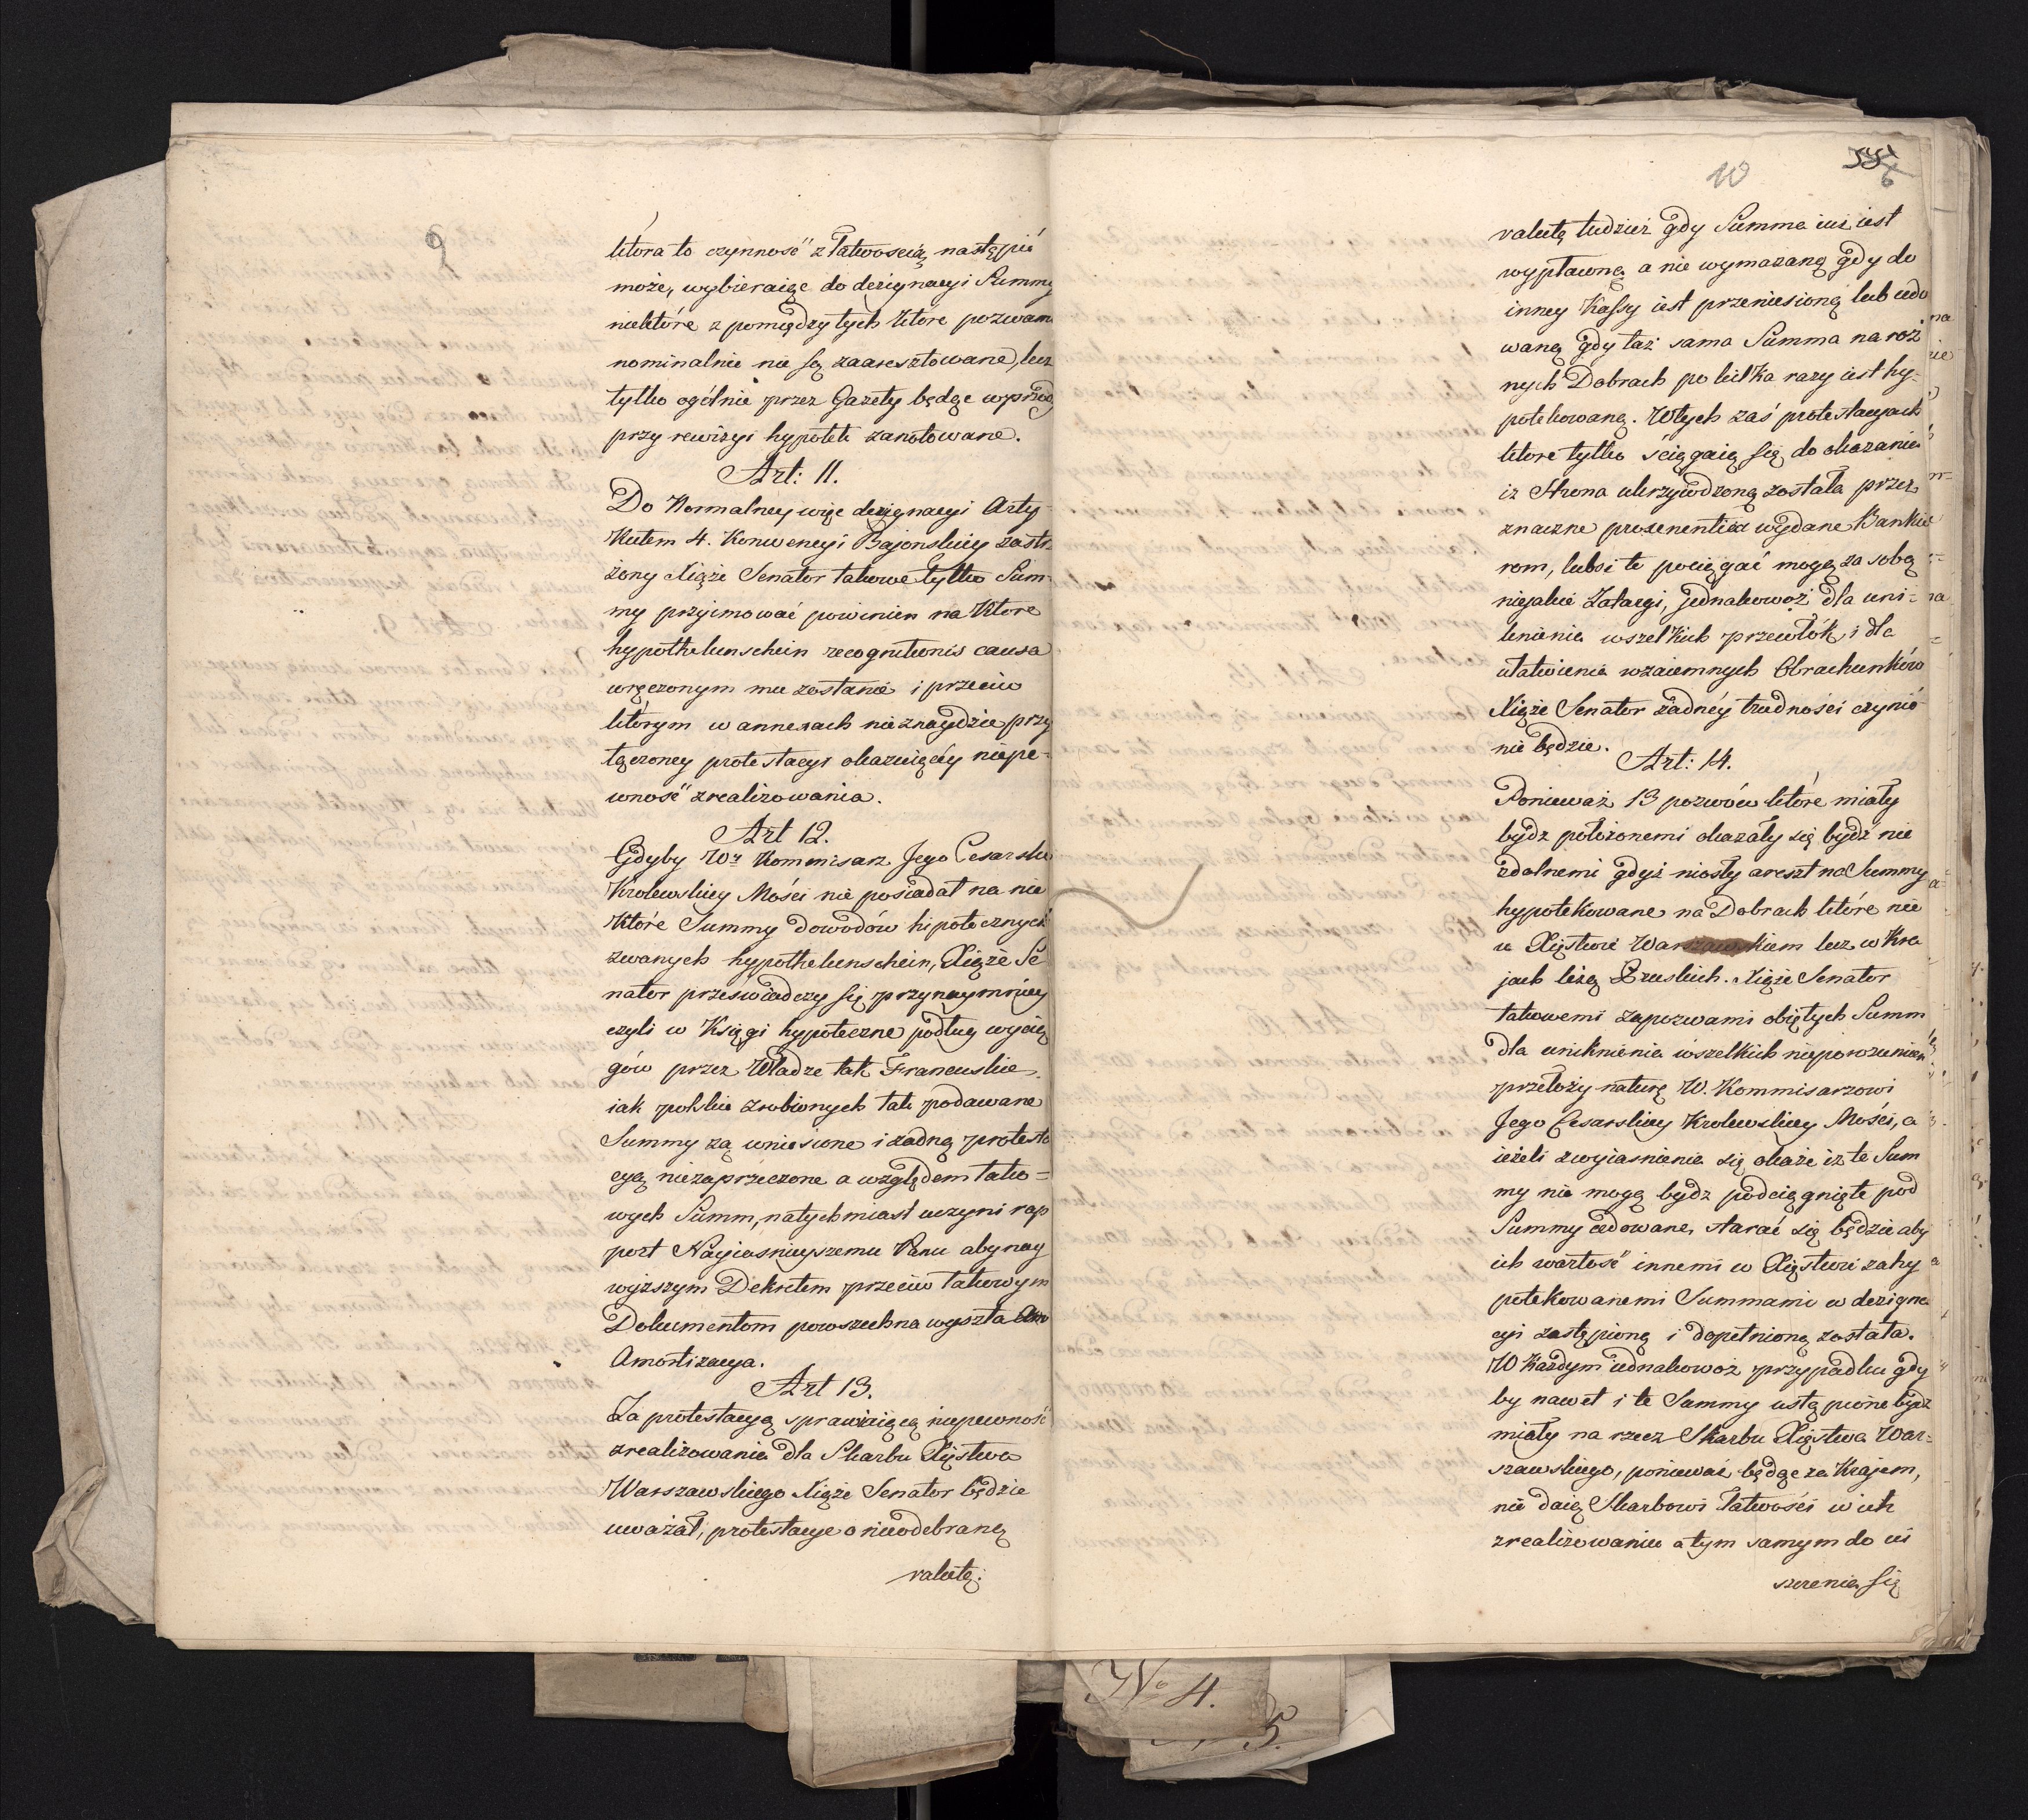 9
która to czynność z Łatwoscią nastąpić
może, wybieraiąc do dezignacyi Summy
niektóre z pomiędzy tych które pozwam
nominalnie nie są zaaresztowane, lecz
tylko ogólnie przez Gazety będąc
przy rewizyi hypotek zanotowane.
Art: 11.
Do Normalney więc dezignacyi Arty-
kułem 4. Konwencyi Bajonskiey zastrz
żony Xiąże Senator takowe tylko Sum-
my przyimować powinien na Ktore
hypothekenschein recognitionis causa
wręczonym mu zostanie i przeciw
którym w annexach nie znaydzie przy
łączoney protestacyi okazuiącéy niepe-
wność zrealizowania.
Art 12.
Gdyby Wr Kommisarz Jego Cesarsko
Krolewskiey Mości nie posiadał na nie
Które Summy dowodów hipotecznych
zwanych hypothekenschein, Xiąże Se
nator przeświadczy się przynaymniey
czyli w Księgi hypoteczne podług wycią
gów przez Władze tak Francuskie
iak polskie zrobionych tak podawane
Summy są wniesione i żadną protesta
cyą niezaprzeczone a względem tako=
wych Summ, natychmiast uczyni rap
port Nayiaśnieyszemu Panu aby nay
wyższym Dekretem przeciw takowym
Dokumentom powszechna wyszła Amo
Amortizacya.
Art 13.
Za protestacyą sprawiaiącą niepewność
zrealizowania dla Skarbu Xięstwa
Warszawskiego Xiąże Senator będzie
uważał, protestacye o nieodebraną
valutę.
10
valutę tudzież gdy Summa iuż iest
wypłaconą a nie wymazaną gdy do
inney Kassy iest przeniesioną lub cedo
waną gdy taż sama Summa na roż
nych Dobrach po kilka razy iest hy-
potekowaną. W tych zaś protestacyach
ktore tylko ściągaią się do okazania
iż Strona ukrzywdzoną została przez
znaczne prozenenta wydane Bankie
rom, lubo i te pociągać mogą za sobą
nieiakie Zatargi, jednakowoż dla uni-
knienia wszelkich przewłók i dla
ułatwienia wzaiemnych Obrachunków
Xiąże Senator żadnéy trudności czynić
nie będzie.
Art: 14.
Ponieważ 13 pozwów które miały
bydz położonemi okazały się bydź nie
zdolnemi gdyż niosły areszt na Summy
hypotekowane na Dobrach które nie
w Xięstwie Warszawskiem lecz w Kra
jach leżą Pruskich. Xiąże Senator
takowemi zapozwami obiętych Summ
dla uniknienia wszelkich nieporozumień
przełoży naturę W. Kommisarzowi
Jego Cesarskiey Krolewskiey Mości, a
ieżeli z wyiasnienia się okaże iż te Sum
my nie mogą bydz podciągnięte pod
Summy cedowane, starać się będzie aby
ich wartość innemi w Xięstwie zahy
potekowanemi Summami w dezigna
cyi zastąpioną i dopełnioną została.
W każdym iednakowoż przypadku gdy
by nawet i te Summy ustąpione bydz
miały na rzecz Skarbu Xięstwa War-
szawskiego, ponieważ będąc za Krajem,
nie daią Skarbowi Łatwości w ich
zrealizowaniu a tym samym do ui
szczenia się
No 4.
5.